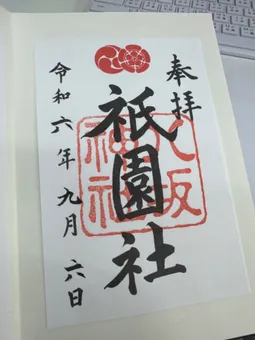 奉拝
八坂
神社
祇園社
令和六年九月六日